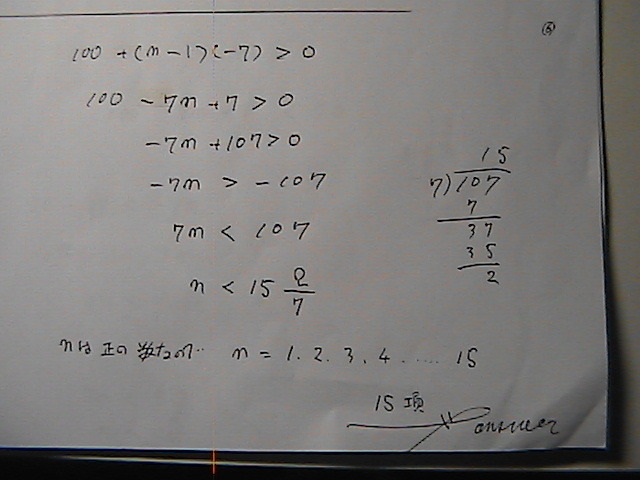 ⑥
100 + (n-1)(-7) > 0
100 - 7n + 7 > 0
-7n + 107 > 0
-7n > -107
7n < 107
n < 15 2/7
15
7)107
7
37
35
2
nは正の整数なので‥ n = 1. 2. 3. 4. ‥‥ 15
15項
answer